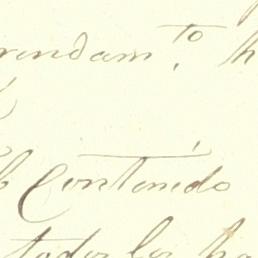 rendam.to h
Contenido
todos los ha